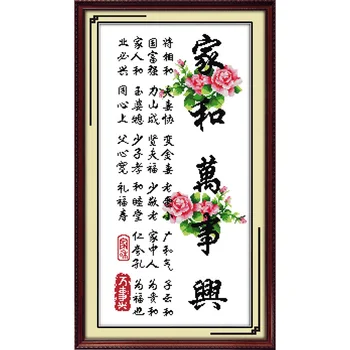 家和萬事興
将相和 夫妻协
国富强 力山成
家人和 玉婆媳
业必兴 同心上
变金妻 老
贤夫福 少敬老
少子孝 和睦堂
父心宽 礼福寿
广和气 子云和
家中人 为贵和
仁 孔 为福也
万事兴